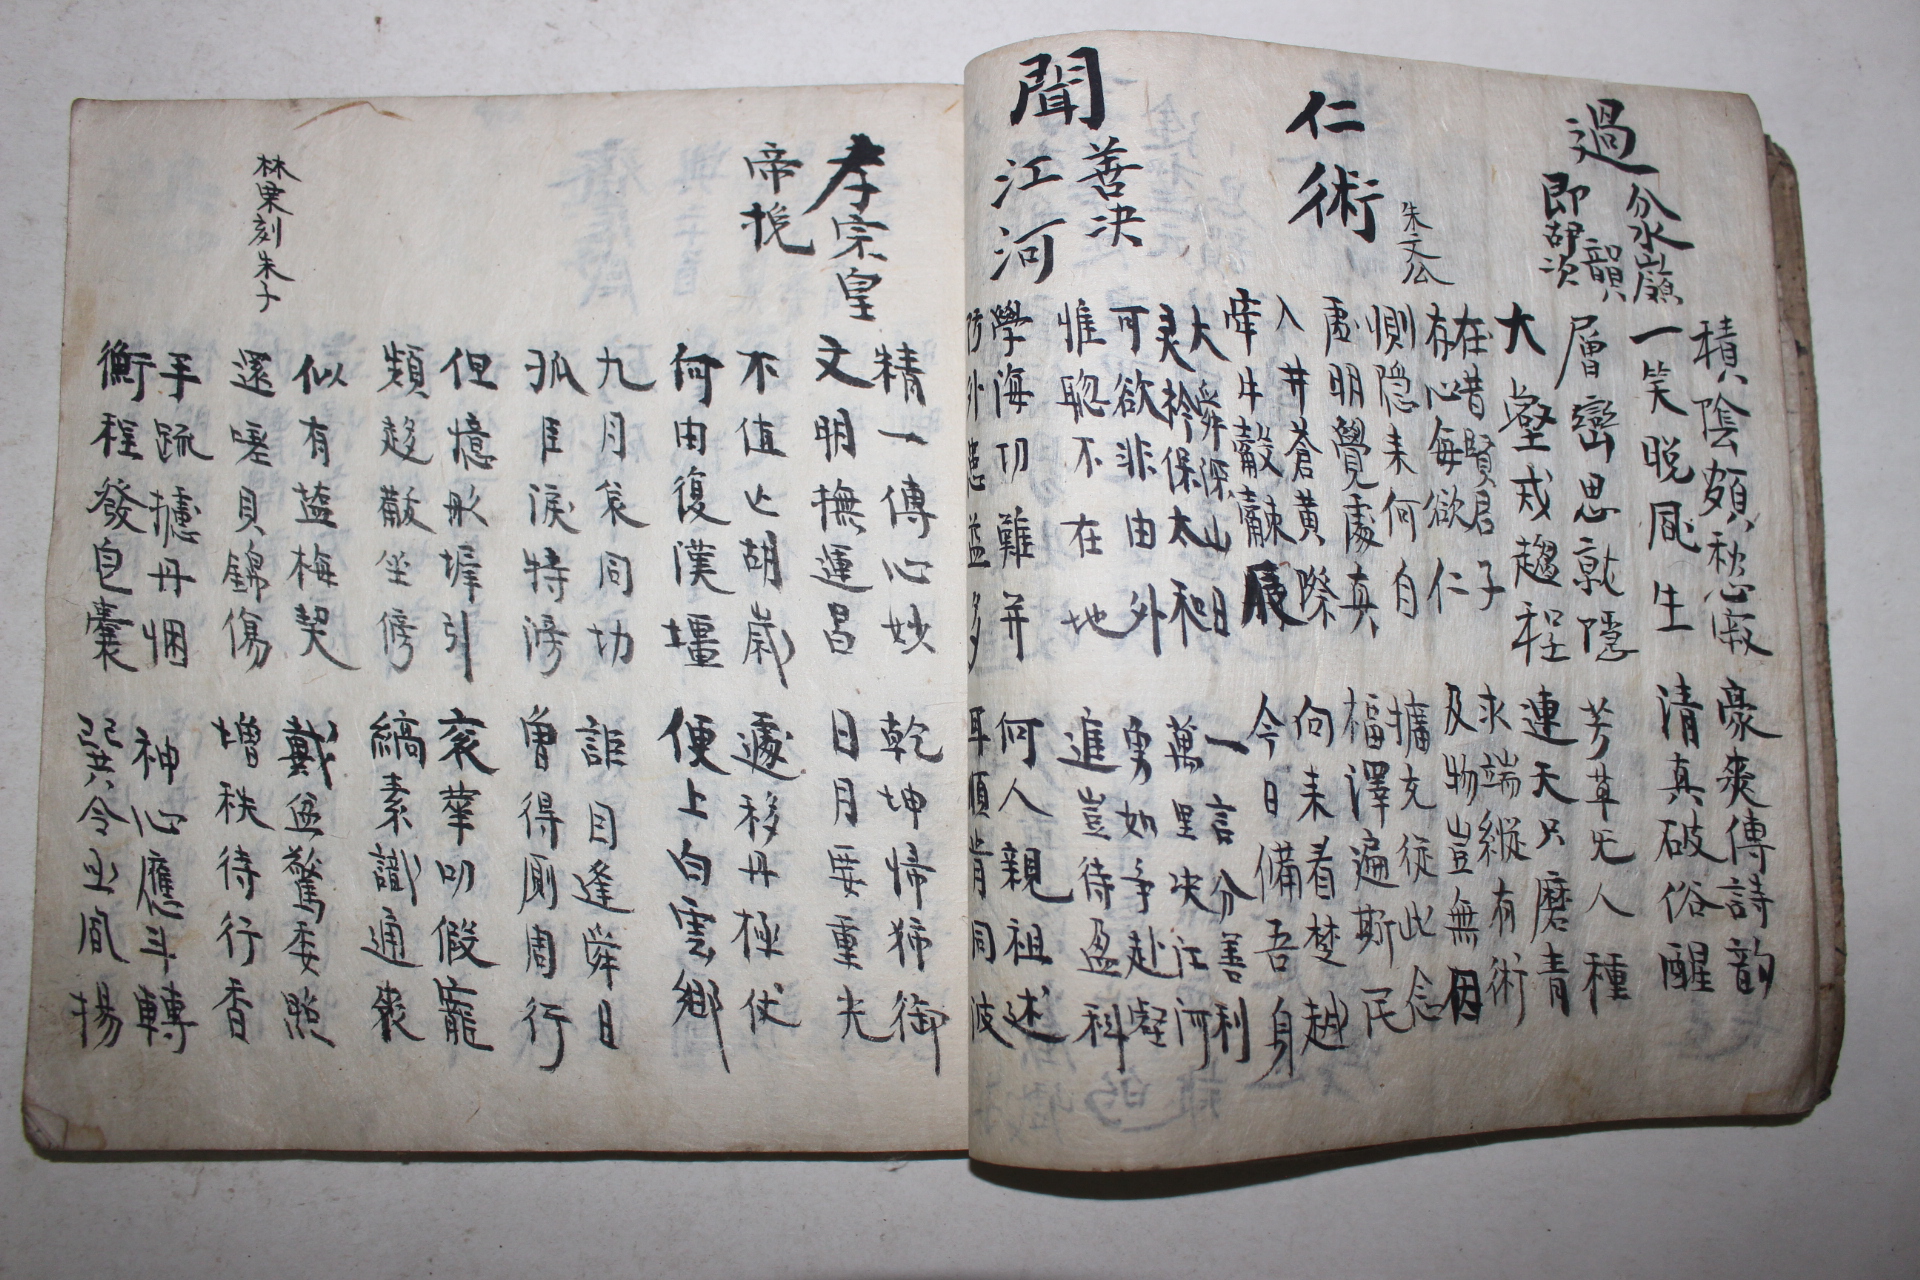 積陰頗愁寂 豪爽傳詩韵
一笑晚風生 清真破俗醒
過分水嶺
即胡次韻
層巒思就隱 芳草旡人種
大壑戎趨程 連天只麽青
仁術 朱文公
在昔賢君子 求端縱有術
存心每欲仁 及物豈無因
惻隱来何自 擴充從此念
虛明覺處真 福澤遍斯民
入井蒼黃際 向来看楚越
牽牛觳觫辰 今日備吾身
聞善決江河
大舜深山日 一言分善利
灵襟保太和 萬里決江河
可欲非由外 勇如爭赴壑
惟聰不在地 進豈待盈科
學海功難并 何人親祖述
防川患益多 耳順肯同波
孝宗皇帝挽
精一傳心妙 乾坤歸獨御
文明撫運昌 日月要重光
不值亡胡歲 遽移丹極仗
何由復漢壃 便上白雲鄉
九月哀同切 詎因逢舜日
孤臣淚特滂 曾得厠周行
但憶彤墀引 袞華叨假寵
頻趍黻坐傍 縞素識通喪
似有鹽梅契 戴盆驚委照
還嗟貝錦傷 增秩待行香
林栗刻朱子
手疏攄丹悃 神心應斗轉
衡程發皂囊 巽令亟風揚